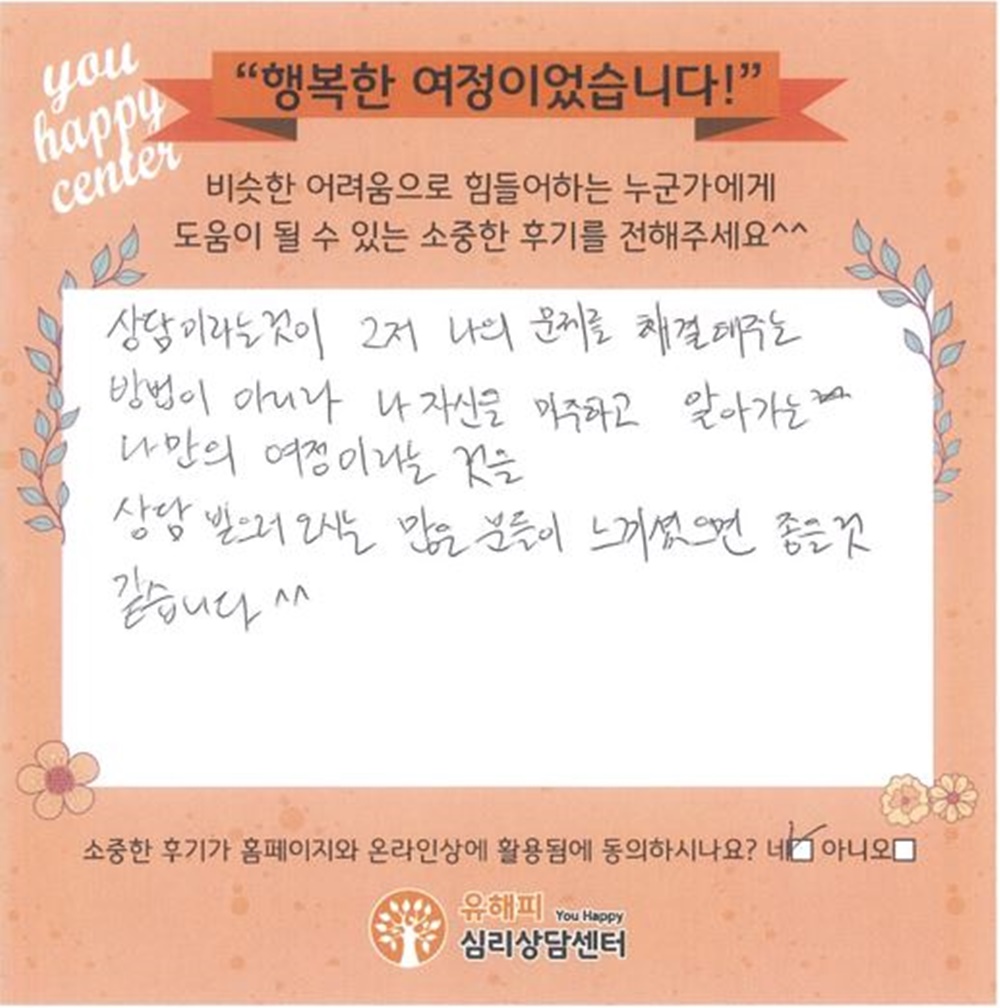 you
happy
center
“행복한 여정이었습니다!”
비슷한 어려움으로 힘들어하는 누군가에게
도움이 될 수 있는 소중한 후기를 전해주세요^^
상담이라는것이 그저 나의 문제를 해결해주는
방법이 아니라 나 자신을 마주하고 알아가는
나만의 여정이라는 것을
상담 받으러 오시는 많은 분들이 느끼셨으면 좋을것
같습니다 ^^
소중한 후기가 홈페이지와 온라인상에 활용됨에 동의하시나요? 네 아니오
유해피 You Happy
심리상담센터